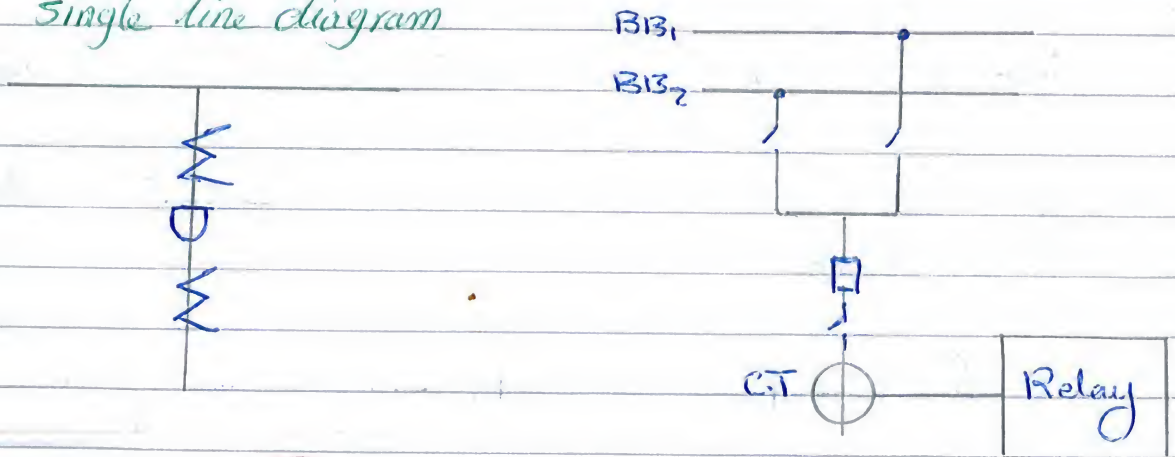 Single line diagram
BB1
BB2
C.T
Relay